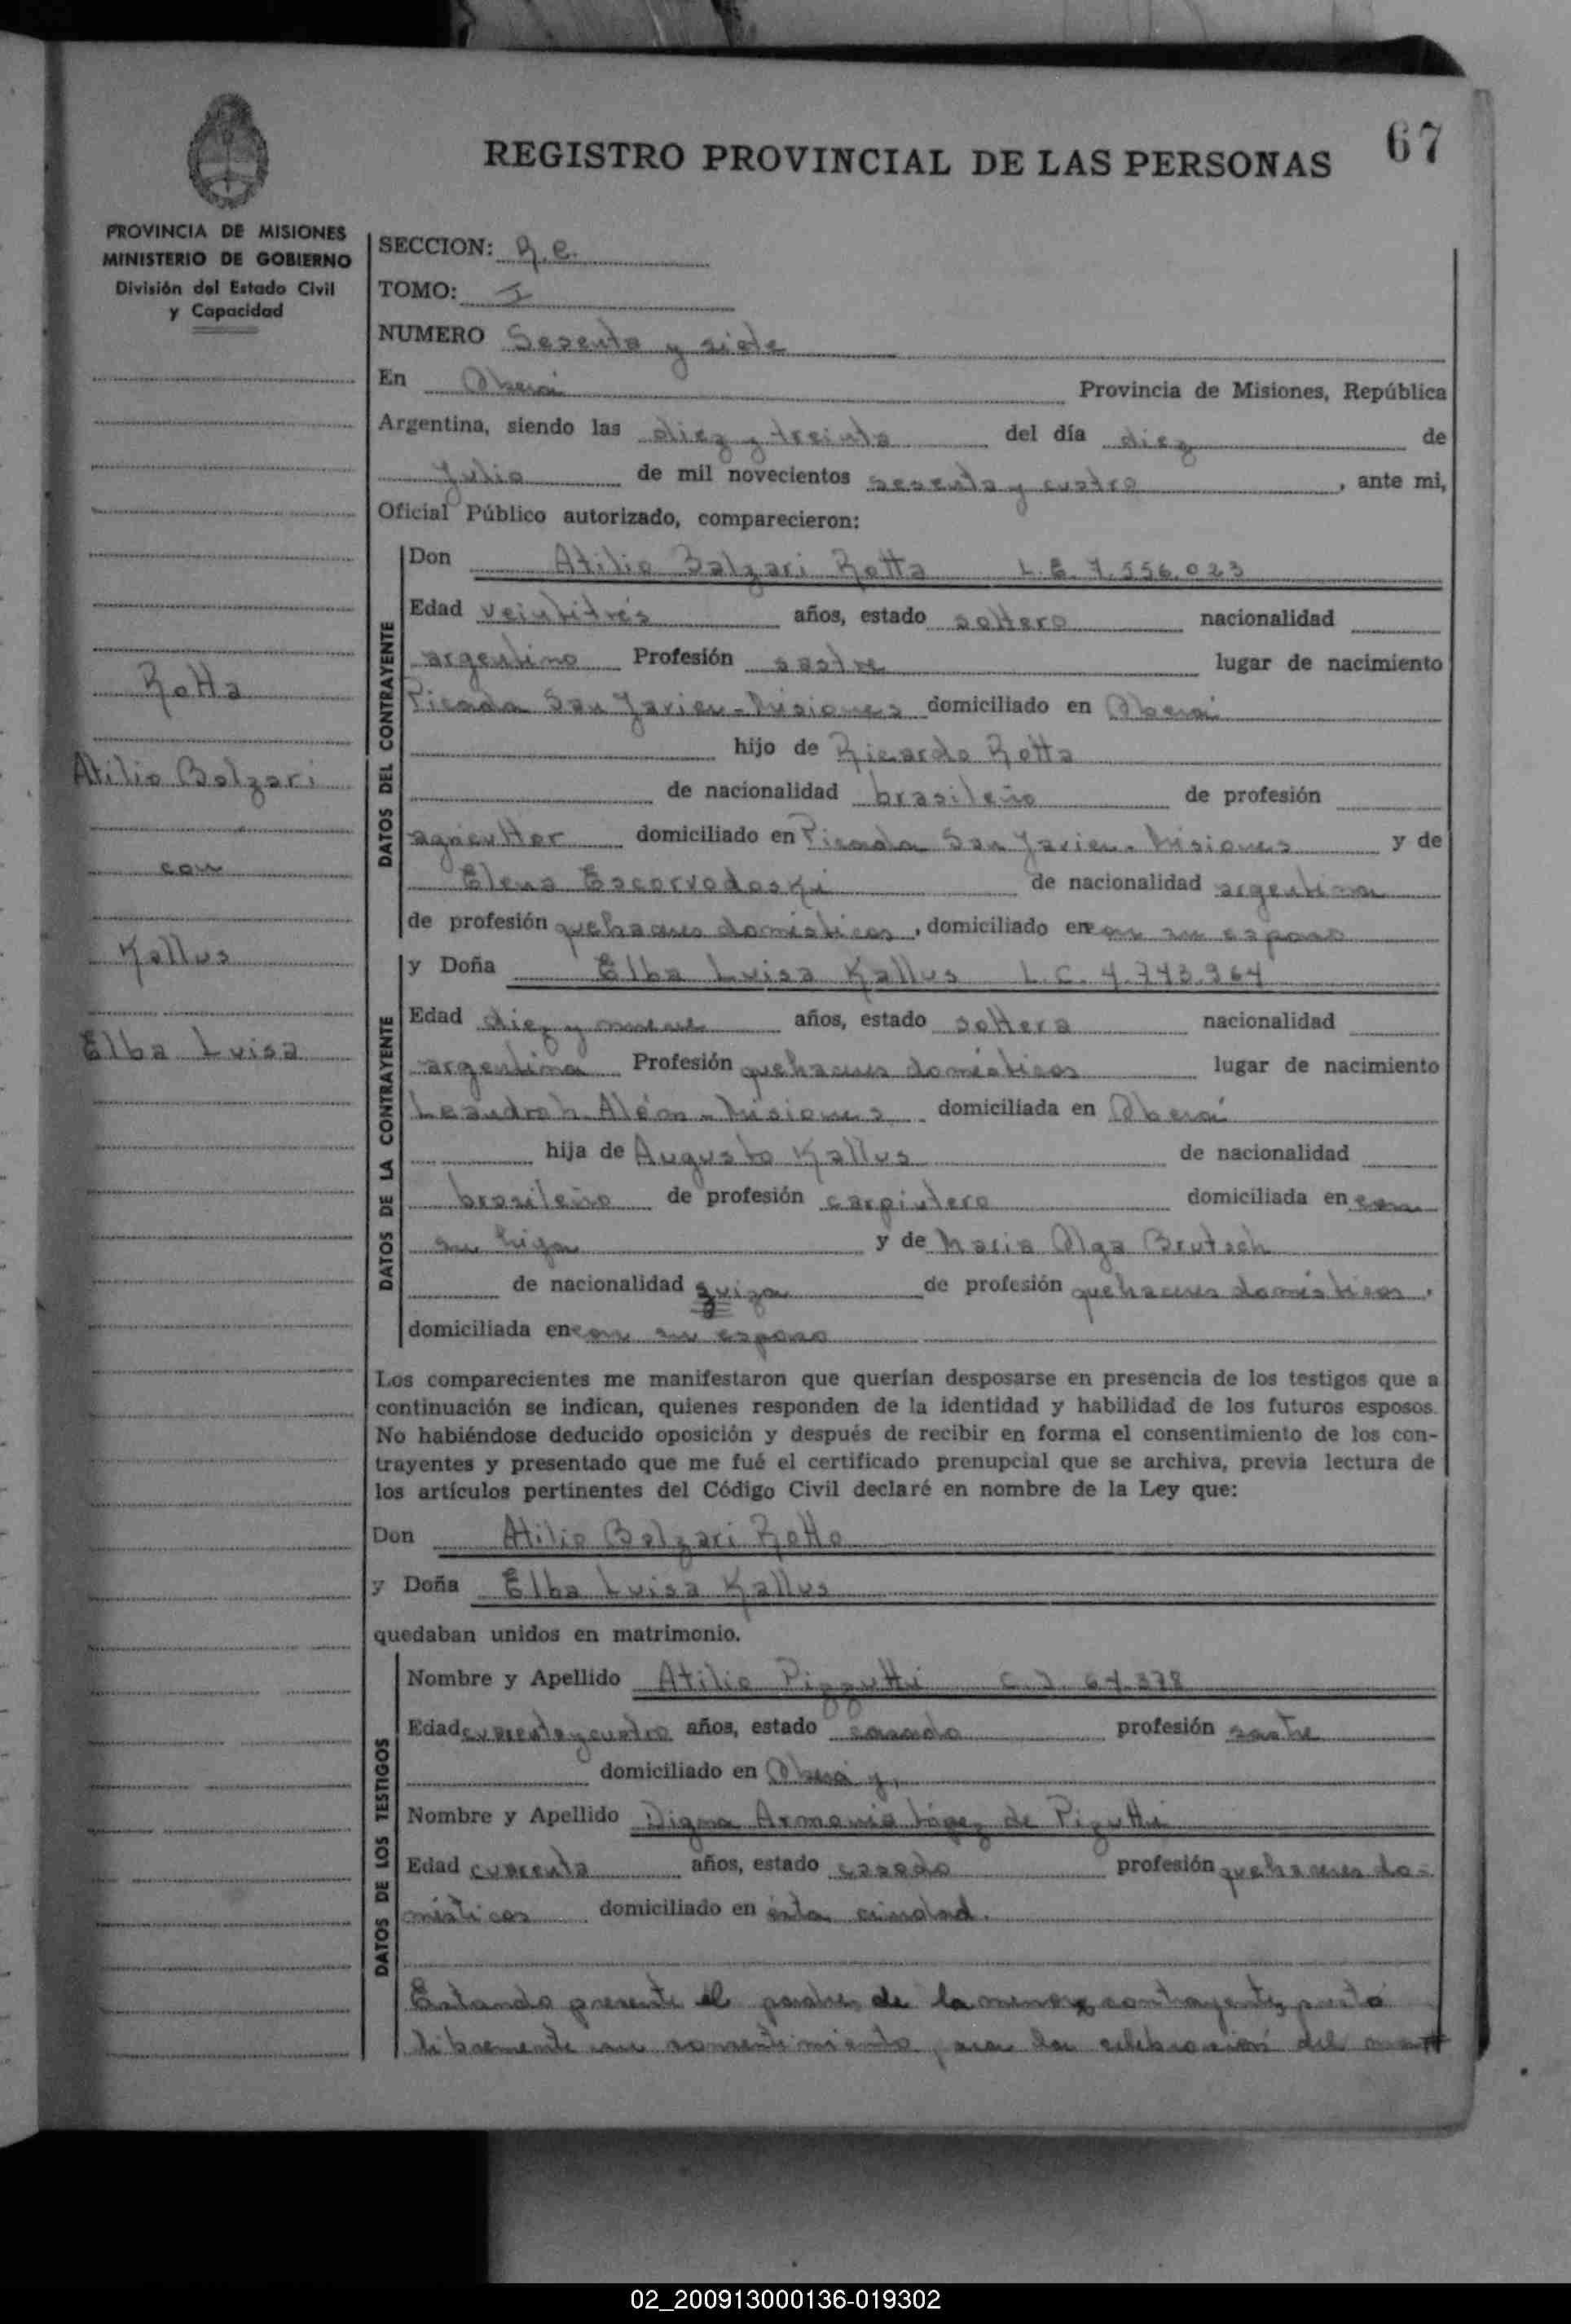 67
REGISTRO PROVINCIAL DE LAS PERSONAS
PROVINCIA DE MISIONES
MINISTERIO DE GOBIERNO
División del Estado Civil
y Capacidad
Rotta
Atilio Balzari
con
Kallus
Elba Luisa
SECCION: R.C.
TOMO: I
NUMERO Sesenta y siete
En Oberá Provincia de Misiones, República
Argentina, siendo las diez y treinta del día diez de
Julio de mil novecientos sesenta y cuatro, ante mi,
Oficial Público autorizado, comparecieron:
DATOS DEL CONTRAYENTE
Don Atilio Balzari Rotta L.E. 7.556.023
Edad veintitrés años, estado soltero nacionalidad
argentino Profesión sastre lugar de nacimiento
Picada San Javier - Misiones domiciliado en Oberá
hijo de Ricardo Rotta
de nacionalidad brasileño de profesión
agricultor domiciliado en Picada San Javier - Misiones y de
Elena Escorvodoski de nacionalidad argentina
de profesión quehaceres domésticos, domiciliado en con su esposo
DATOS DE LA CONTRAYENTE
y Doña Elba Luisa Kallus L.C. 4.743.964
Edad diez y nueve años, estado soltera nacionalidad
argentina Profesión quehaceres domésticos lugar de nacimiento
Leandro N. Além - Misiones domiciliada en Oberá
hija de Augusto Kallus de nacionalidad
brasileño de profesión carpintero domiciliada en con
su hija y de Maria Olga Brutsch
de nacionalidad suiza de profesión quehaceres domésticos,
domiciliada en con su esposo
Los comparecientes me manifestaron que querían desposarse en presencia de los testigos que a
continuación se indican, quienes responden de la identidad y habilidad de los futuros esposos.
No habiéndose deducido oposición y después de recibir en forma el consentimiento de los con-
trayentes y presentado que me fué el certificado prenupcial que se archiva, previa lectura de
los artículos pertinentes del Código Civil declaré en nombre de la Ley que:
Don Atilio Balzari Rotta
y Doña Elba Luisa Kallus
quedaban unidos en matrimonio.
DATOS DE LOS TESTIGOS
Nombre y Apellido Atilio Pizzutti C.I. 64.378
Edad cuarenta y cuatro años, estado casado profesión sastre
domiciliado en Oberá y,
Nombre y Apellido Digna Armonia López de Pizutti
Edad cuarenta años, estado casada profesión quehaceres do-
mésticos domiciliado en ésta ciudad.
Estando presente el padre de la menor contrayente, prestó
libremente su consentimiento para la celebración del
02_200913000136-019302